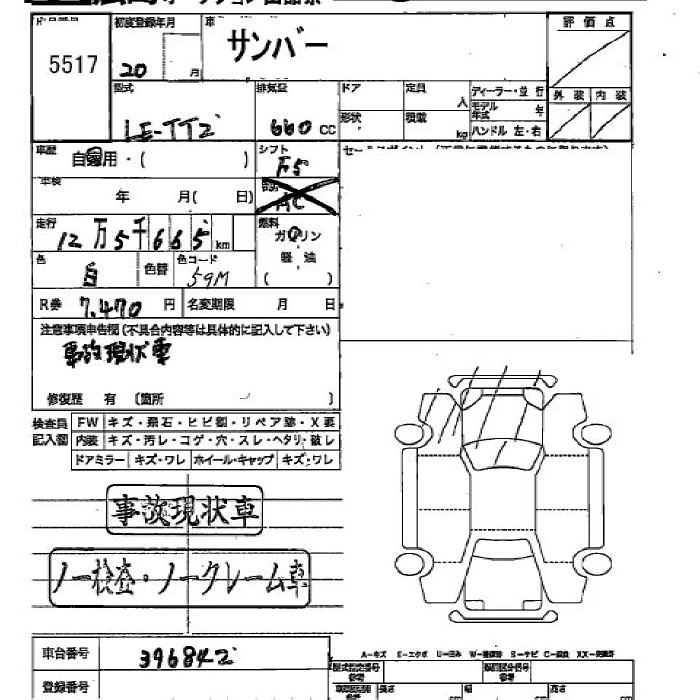 5517
初度登録年月
車
サンバー
評価点
20 月
型式
排気量
ドア
定員
人
ディーラー・並行
外装
内装
LE-TT2
660 cc
形状
積載
kg
モデル年式
年
ハンドル 左・右
車歴
自家用・( )
シフト
F5
車検
年 月( 日)
AC
走行
12万5千665 km
燃料
ガソリン
軽油
( )
色
白
色替
色コード
59M
R券
7.470 円
名変期限
月 日
注意事項申告欄(不具合内容等は具体的に記入して下さい)
事故現状車
修復歴 有 〔箇所 〕
検査員記入欄
FW キズ・飛石・ヒビ割・リペア跡・X要
内装 キズ・汚レ・コゲ・穴・スレ・ヘタリ・破レ
ドアミラー キズ・ワレ ホイール・キャップ キズ・ワレ
事故現状車
ノー検査・ノークレーム車
車台番号
396842
登録番号
長さ
幅
高さ